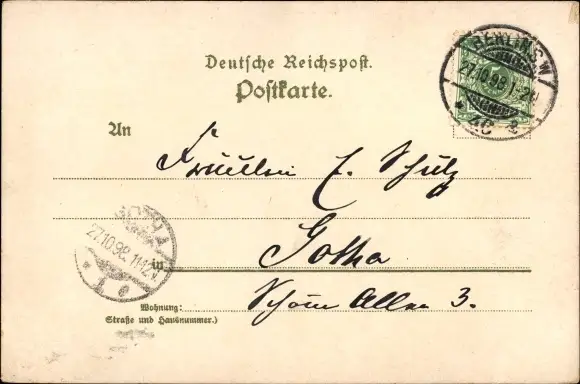 Deutsche Reichspost.
Postkarte.
BERLIN S.W
27.10.98. 1-2N
An
Fräulein E. Schulz
GOTHA
27.10.98.
in Gotha
Wohnung:
Schöne Allee 3.
Straße und Hausnummer.)